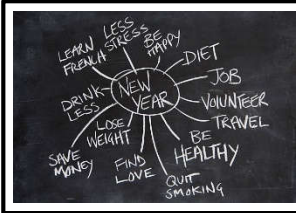 LEARN
FRENCH
LESS
STRESS
BE
HAPPY
DIET
JOB
VOLUNTEER
TRAVEL
BE
HEALTHY
QUIT
SMOKING
FIND
LOVE
LOSE
WEIGHT
SAVE
MONEY
DRINK
LESS
NEW
YEAR